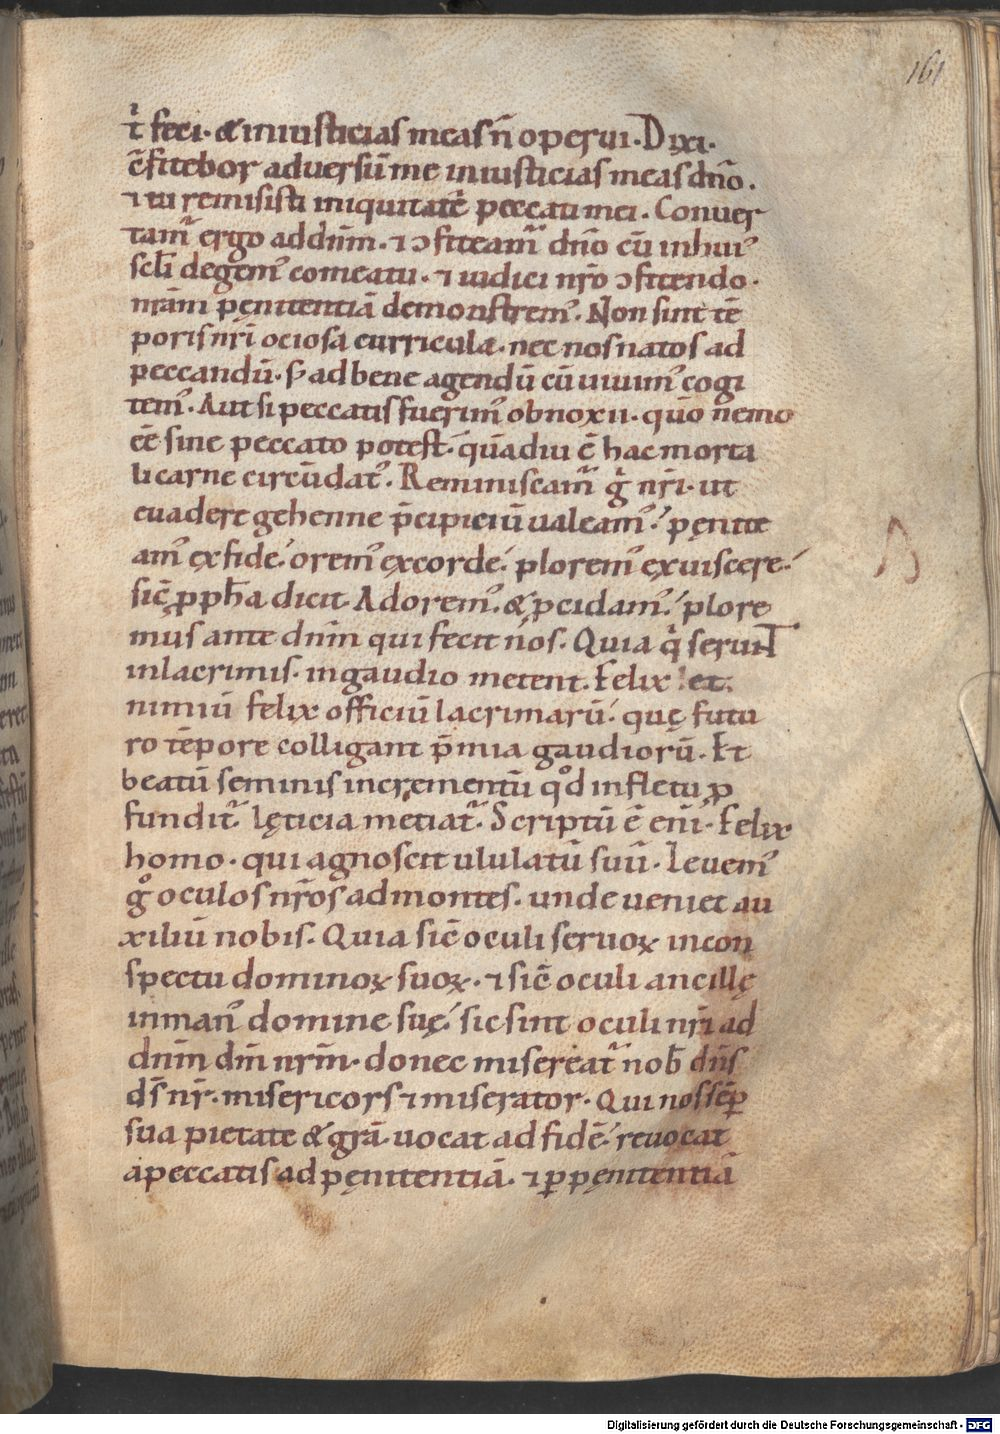 161
t̄ feci · & iniusticias meas n̄ operui · Dixi ·
c̄fitebor aduersū me iniusticias meas dn̄o .
⁊ tu remisisti iniquitatē peccati mei . Conuer
tam᷑ ergo ad dn̄m · ⁊ ɔfiteam᷑ dn̄o cū in hui᷒
scl̄i degem᷒ comeatu · ⁊ iudici nr̄o ɔfitendo ·
nr̄am pęnitentiā demonstrem᷒ · Non sint tē
poris nr̄i ociosa curricula · nec nos natos ad
peccandū · s; ad bene agendū cū uiuim᷒ cogi
tem᷒ . Aut si peccatis fuerim᷒ obnoxii · qn̄o nemo
eē sine peccato potest · quādiu ē hac morta
li carne circūdat᷒ . Reminiscam᷑ gͥ nr̄i · ut
euadere gehenne p̄cipiciū ualeam᷒ · pęnite
am᷒ ex fide · orem᷒ ex corde · plorem᷒ ex uiscere ·
sic̄ ꝓph̄a dicit · Adorem᷒ · & pcidam᷒ · plore
mus ante dn̄m qui fecit nos · Quia qͥ serunt
in lacrimis · in gaudio metent . Felix et
nimiū felix officiū lacrimarū · quę futu
ro tēpore colligant p̄mia gaudiorū · Et
beatū seminis incrementū qͦd in fletu ꝓ
fundit᷑ · lęticia metiat᷑ · Scriptū ē eni̅ · Felix
homo · qui agnoscit ululatū suū · Leuem᷒
gͦ oculos nr̄os ad montes · unde ueniet au
xiliū nobis . Quia sic̄ oculi seruoꝝ in con
spectu dominoꝝ suoꝝ · ⁊ sic̄ oculi ancillę
in man᷒ domine suę · sic sint oculi nr̄i ad
dn̄m dm̄ nr̄m · donec misereat᷑ nob̄ dn̄s
ds̄ nr̄ · misericors ⁊ miserator · Qui nos sēꝑ
sua pietate & grā · uocat ad fidē · reuocat
a peccatis ad pęnitentiā . ⁊ ꝑ pęnitentiā
Digitalisierung gefördert durch die Deutsche Forschungsgemeinschaft - DFG